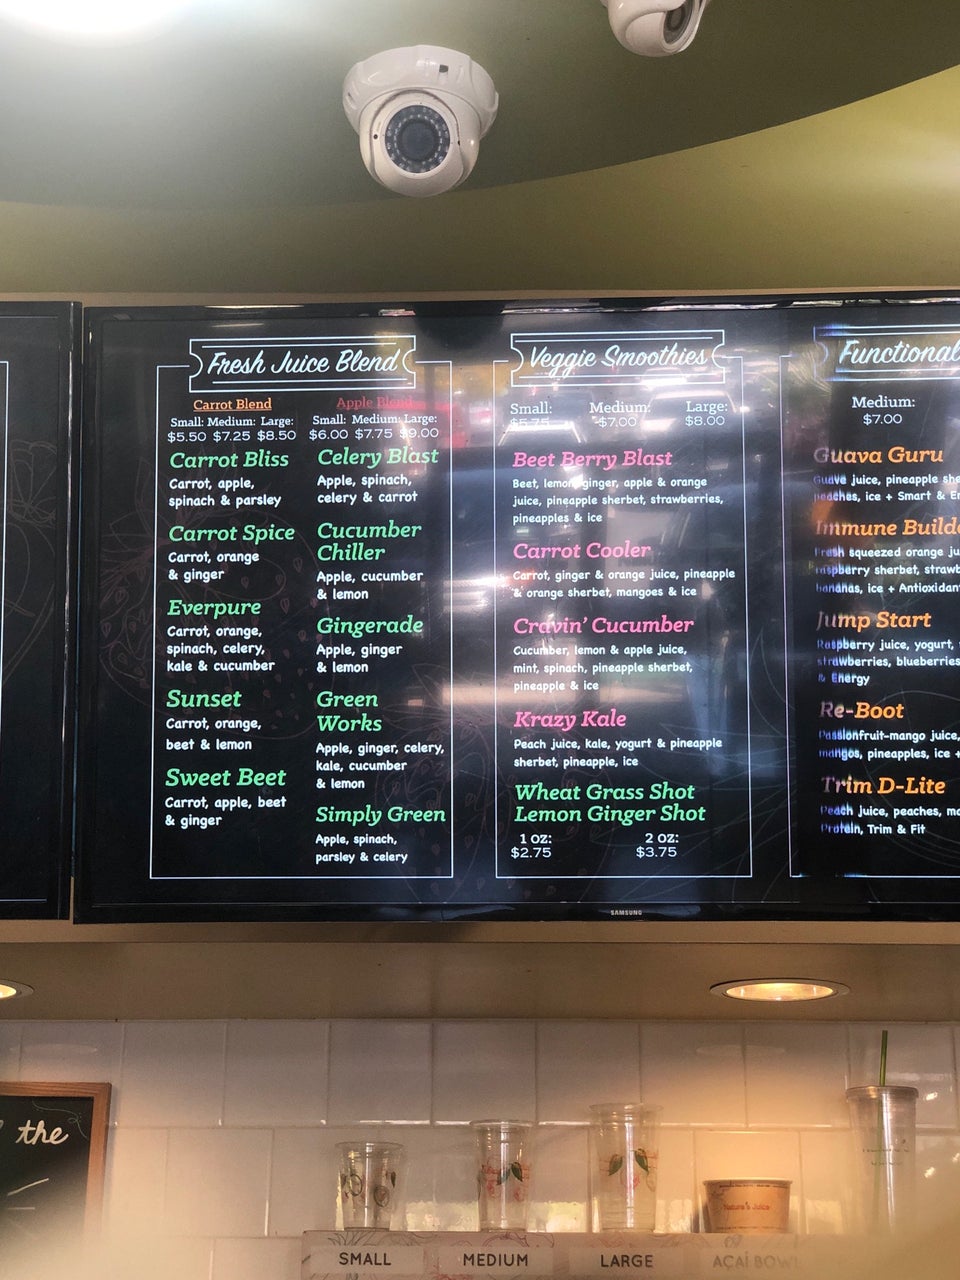 Fresh Juice Blend
Carrot Blend
Small: Medium: Large:
$5.50 $7.25 $8.50
Carrot Bliss
Carrot, apple,
spinach & parsley
Carrot Spice
Carrot, orange
& ginger
Everpure
Carrot, orange,
spinach, celery,
kale & cucumber
Sunset
Carrot, orange,
beet & lemon
Sweet Beet
Carrot, apple, beet
& ginger
Apple Blend
Small: Medium: Large:
$6.00 $7.75 $9.00
Celery Blast
Apple, spinach,
celery & carrot
Cucumber
Chiller
Apple, cucumber
& lemon
Gingerade
Apple, ginger
& lemon
Green
Works
Apple, ginger, celery,
kale, cucumber
& lemon
Simply Green
Apple, spinach,
parsley & celery
Veggie Smoothies
Small: Medium: Large:
$5.75 $7.00 $8.00
Beet Berry Blast
Beet, lemon, ginger, apple & orange
juice, pineapple sherbet, strawberries,
pineapples & ice
Carrot Cooler
Carrot, ginger & orange juice, pineapple
& orange sherbet, mangoes & ice
Cravin' Cucumber
Cucumber, lemon & apple juice,
mint, spinach, pineapple sherbet,
pineapple & ice
Krazy Kale
Peach juice, kale, yogurt & pineapple
sherbet, pineapple, ice
Wheat Grass Shot
Lemon Ginger Shot
1 oz: 2 oz:
$2.75 $3.75
Functional
Medium:
$7.00
Guava Guru
Guava juice, pineapple she
peaches, ice + Smart & En
Immune Builde
Fresh squeezed orange ju
raspberry sherbet, strawb
bananas, ice + Antioxidan
Jump Start
Raspberry juice, yogurt,
strawberries, blueberries
& Energy
Re-Boot
Passionfruit-mango juice,
mangos, pineapples, ice +
Trim D-Lite
Peach juice, peaches, ma
Protein, Trim & Fit
SAMSUNG
the
Nature's Juice
SMALL MEDIUM LARGE AÇAÍ BOWL